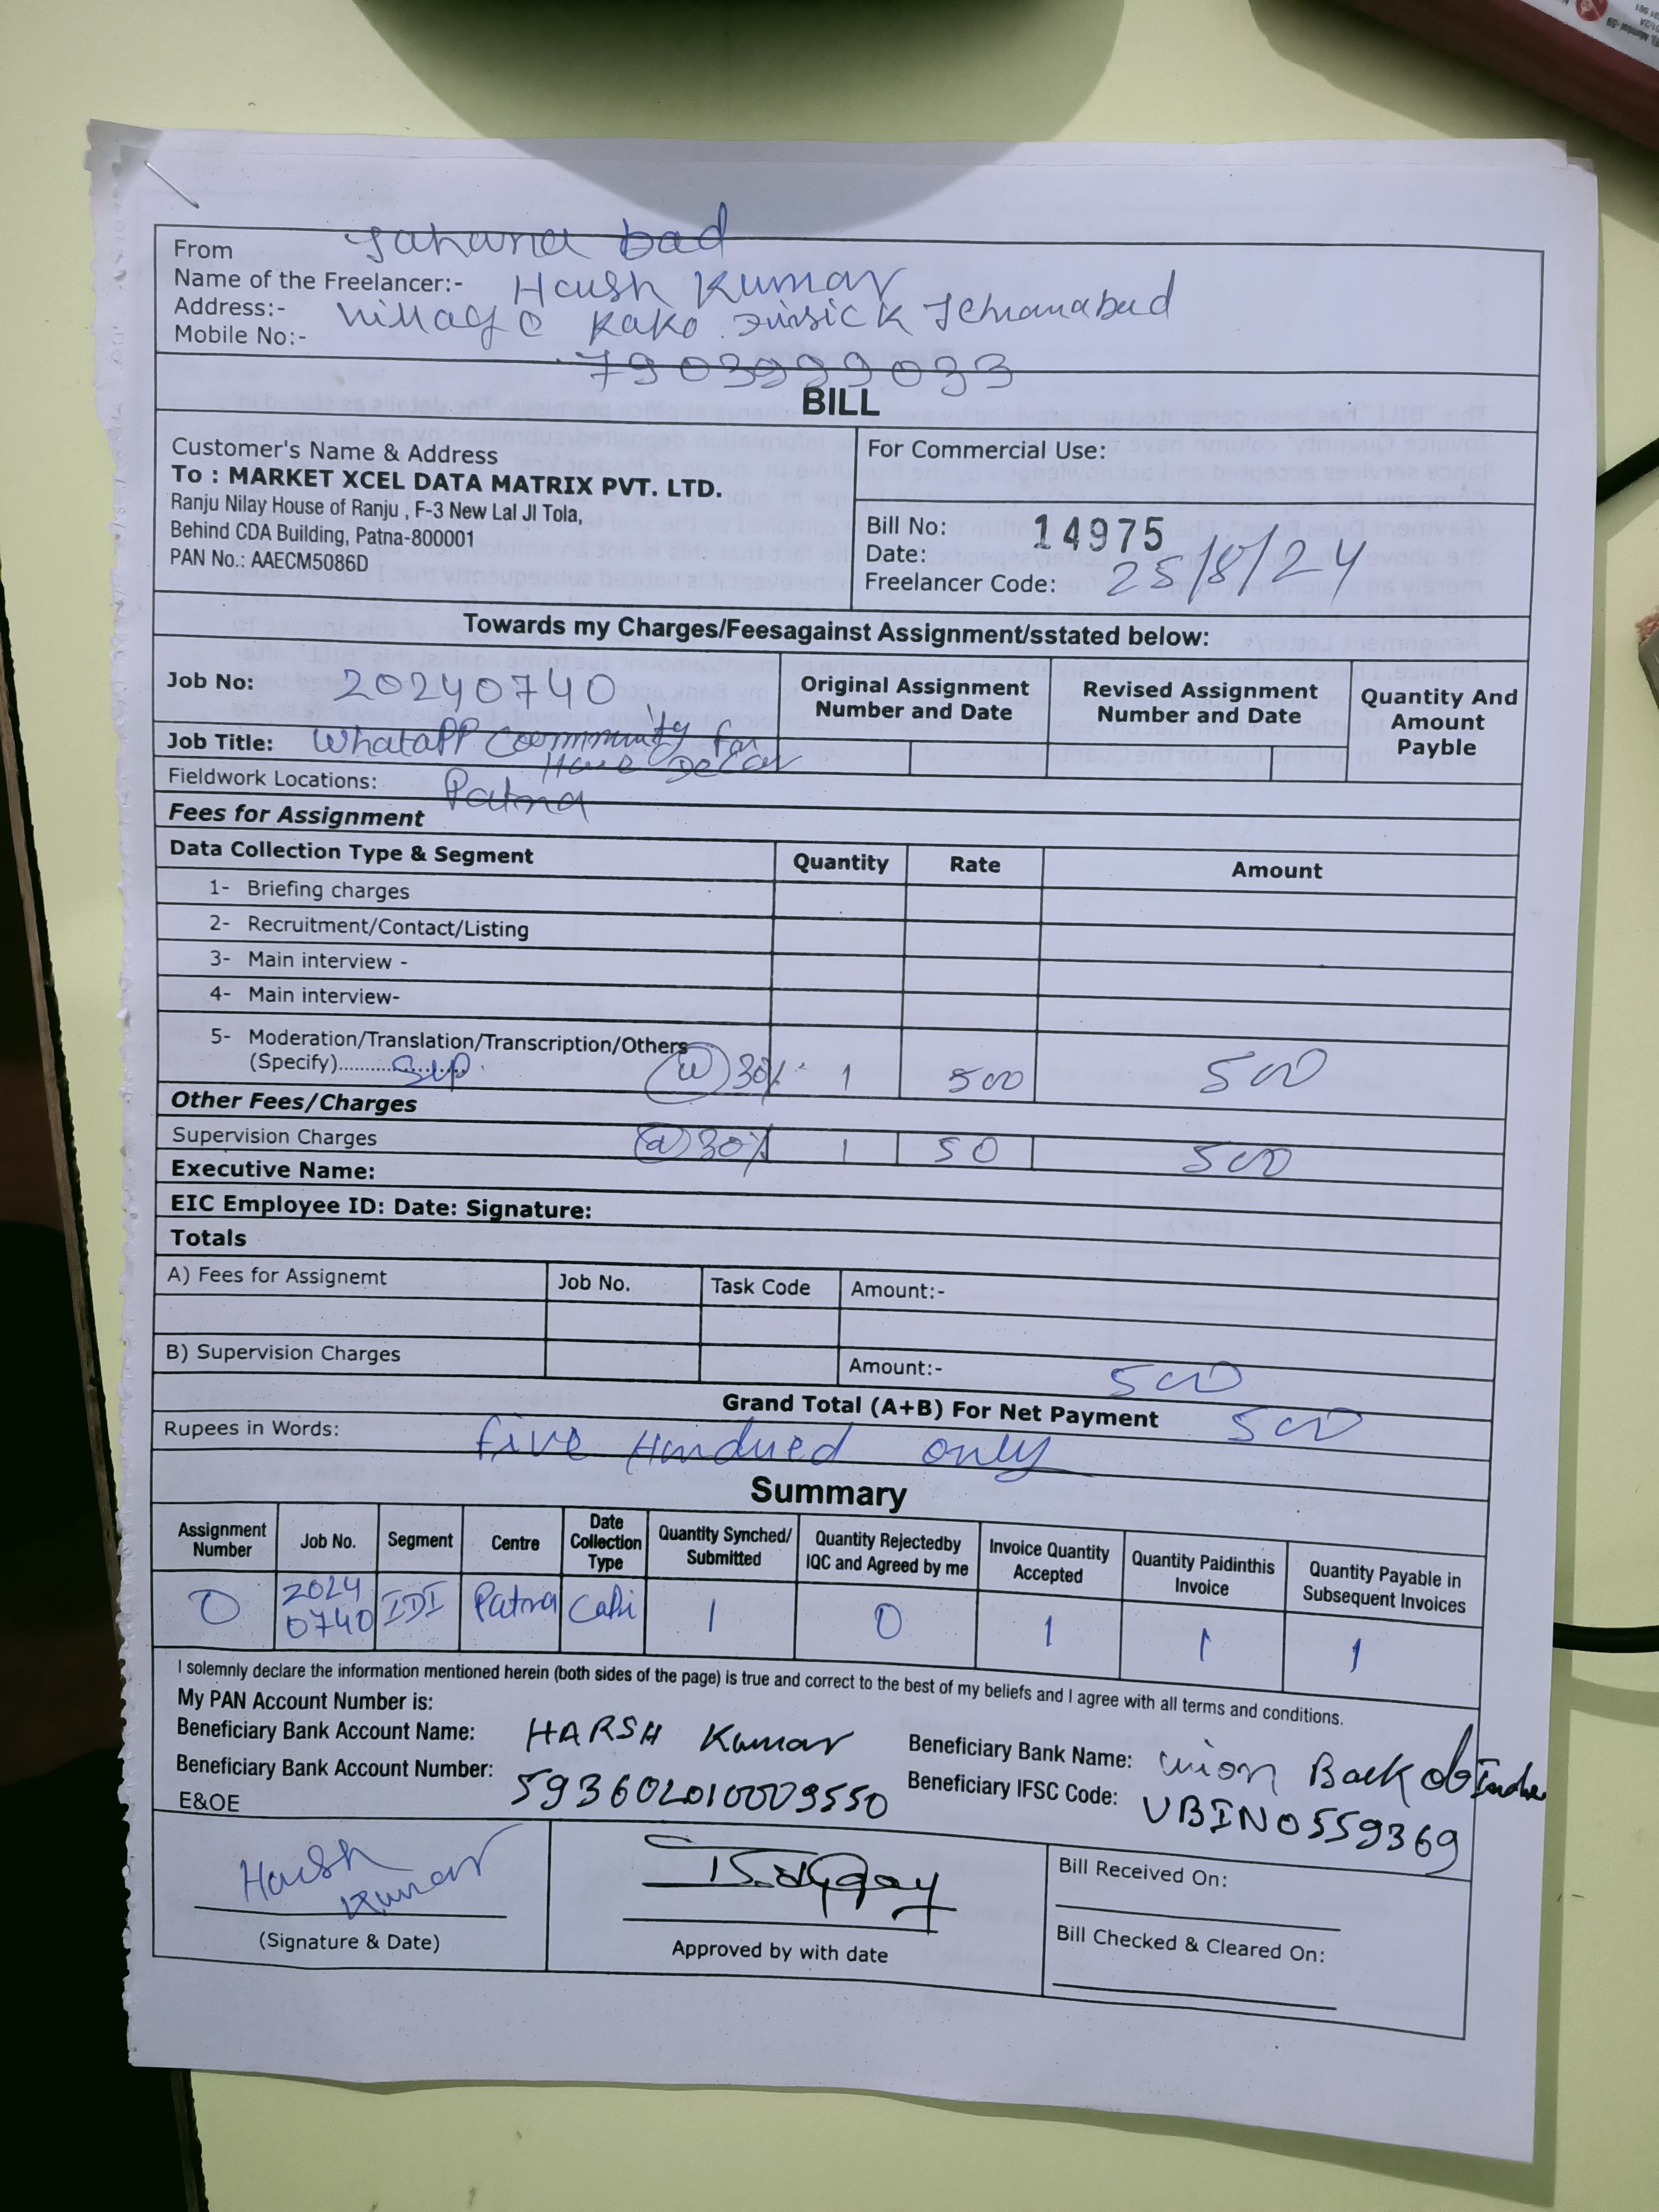 From Jahana bad
Name of the Freelancer:- Harsh Kumar
Address:- Village Kako Jehanabad
Mobile No:- 7903999033
BILL
Customer's Name & Address
To : MARKET XCEL DATA MATRIX PVT. LTD.
Ranju Nilay House of Ranju , F-3 New Lal JI Tola,
Behind CDA Building, Patna-800001
PAN No.: AAECM5086D
For Commercial Use:
Bill No: 14975
Date: 25/8/24
Freelancer Code:
Towards my Charges/Feesagainst Assignment/sstated below:
Job No: 20240740
Original Assignment Number and Date
Revised Assignment Number and Date
Quantity And Amount Payble
Job Title: Whatapp Coommunity for
Decar
Fieldwork Locations: Patna
Fees for Assignment
Data Collection Type & Segment Quantity Rate Amount
1- Briefing charges
2- Recruitment/Contact/Listing
3- Main interview -
4- Main interview-
5- Moderation/Translation/Transcription/Others
(Specify)..................... Sup @ 30% 1 500 500
Other Fees/Charges
Supervision Charges @ 30% 1 50 500
Executive Name:
EIC Employee ID: Date: Signature:
Totals
A) Fees for Assignemt Job No. Task Code Amount:-
B) Supervision Charges Amount:- 500
Grand Total (A+B) For Net Payment 500
Rupees in Words: five Hundred only
Summary
Assignment Number Job No. Segment Centre Date Collection Type Quantity Synched/ Submitted Quantity Rejectedby IQC and Agreed by me Invoice Quantity Accepted Quantity Paidinthis Invoice Quantity Payable in Subsequent Invoices
0 2024 0740 IDI Patna Capi 1 0 1 1 1
I solemnly declare the information mentioned herein (both sides of the page) is true and correct to the best of my beliefs and I agree with all terms and conditions.
My PAN Account Number is:
Beneficiary Bank Account Name: HARSH Kumar
Beneficiary Bank Name: Union Back of India
Beneficiary Bank Account Number: 593602010009550
Beneficiary IFSC Code: UBIN0559369
E&OE
Harsh Kumar
(Signature & Date)
Approved by with date
Bill Received On:
Bill Checked & Cleared On: